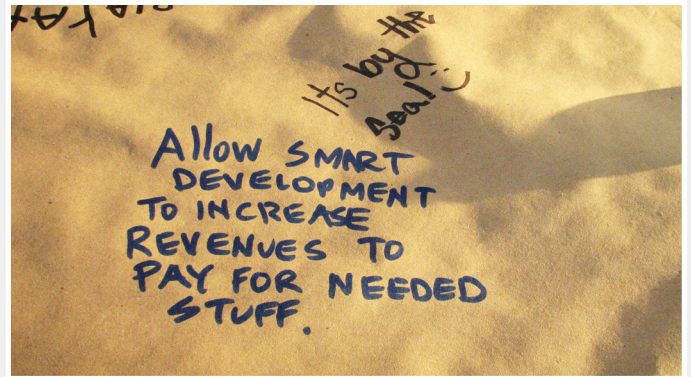 Its by the
Seal :)
Allow SMART
DEVELOPMENT
TO INCREASE
REVENUES TO
PAY FOR NEEDED
STUFF.